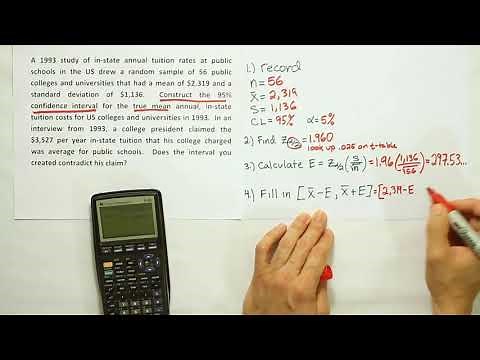 A 1993 study of in-state annual tuition rates at public
schools in the US drew a random sample of 56 public
colleges and universities that had a mean of $2,319 and a
standard deviation of $1,136. Construct the 95%
confidence interval for the true mean annual, in-state
tuition costs for US colleges and universities in 1993. In an
interview from 1993, a college president claimed the
$3,527 per year in-state tuition that his college charged
was average for public schools. Does the interval you
created contradict his claim?
1.) record
n = 56
x̄ = 2,319
S = 1,136
CL = 95% α = 5%
2) Find Zα/2 = 1.960
look up .025 on t-table
3.) Calculate E = Zα/2 (s/√n) = 1.96 (1,136/√56) = 297.53...
4.) Fill in [x̄ - E, x̄ + E] = [2,319 - E